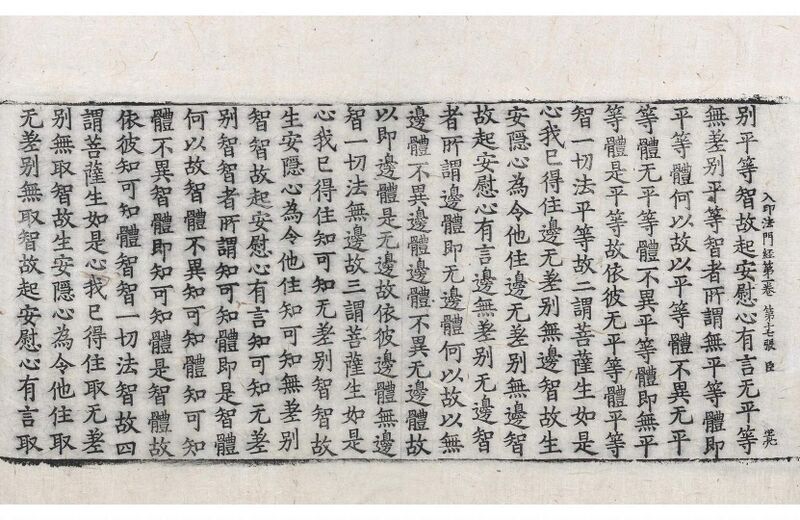 入印法門経第二卷 第十七張 臣
別平等智故起安慰心有言无平等
無差別平等智者所謂無平等體即
平等體何以故以平等體不異无平
等體无平等體不異平等體即無平
等體是平等故依彼无平等體平等
智一切法平等故二謂菩薩生如是
心我已得住邊无差別無邊智故生
安隱心為令他住邊无差別無邊智
故起安慰心有言邊無差別无邊智
者所謂邊體即无邊體何以故以無
邊體不異邊體邊體不異无邊體故
以即邊體是无邊故依彼邊體無邊
智一切法無邊故三謂菩薩生如是
心我已得住知可知无差別智智故
生安隱心為令他住知可知無差別
智智故起安慰心有言知可知无差
別智智者所謂知可知體即是智體
何以故智體不異知可知體知可知
體不異智體即知可知體是智體故
依彼知可知體智智一切法智故四
謂菩薩生如是心我已得住取无差
別無取智故生安隱心為令他住取
无差別無取智故起安慰心有言取